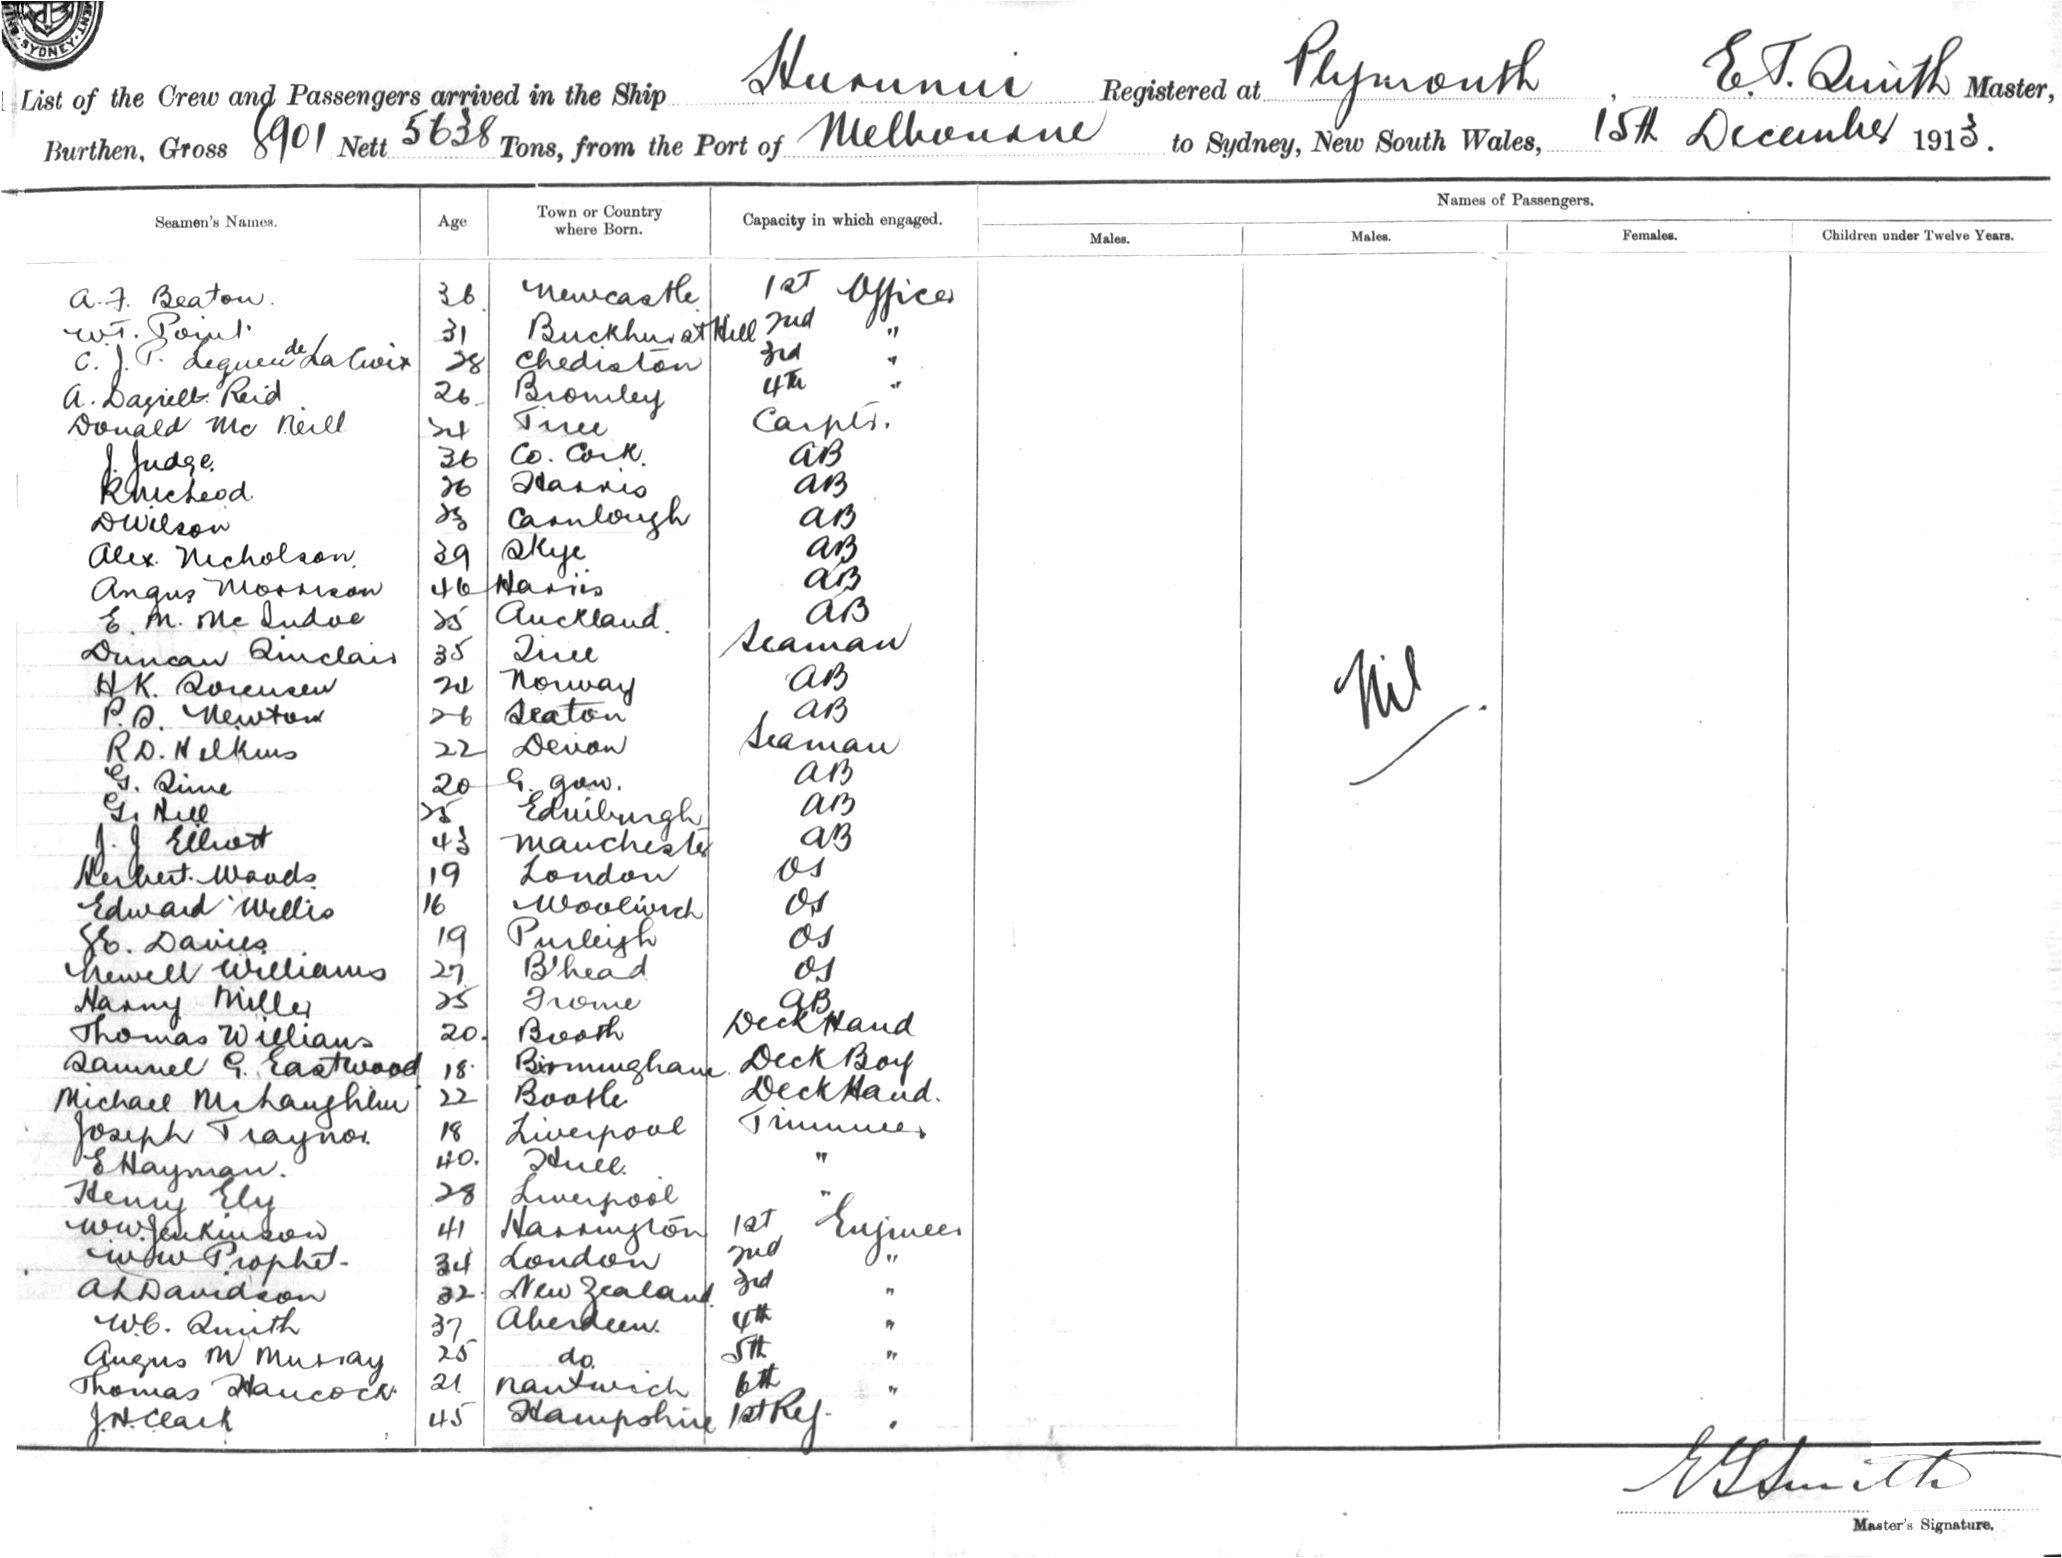 SYDNEY
List of the Crew and Passengers arrived in the Ship Hurunui Registered at Plymouth, E. T. Smith Master,
Burthen, Gross 8901 Nett 5638 Tons, from the Port of Melbourne to Sydney, New South Wales, 15th December 1913.
Names of Passengers.
Seamen's Names. Age Town or Country where Born. Capacity in which engaged. Males. Males. Females. Children under Twelve Years.
A. F. Beaton. 36 Newcastle 1st Officer
W.T. Point. 31 Buckhurst Hill 2nd "
C. J. P. de La Croix 28 Chediston 3rd "
A. Reid 26 Bromley 4th "
Donald Mc Neill 24 Tiree Carptr.
J. Judge. 36 Co. Cork. AB
R McLeod 26 Harris AB
D Wilson 23 Carnlough AB
Alex. Nicholson. 39 Skye AB
Angus Morrison 46 Harris AB
E. M. Mc Indoe 25 Auckland. AB
Duncan Sinclair 35 Tiree Seaman
H K. Sorensen 24 Norway AB
P. S. Newton 26 Seaton AB
R D. Hilkins 22 Devon Seaman
G. Sime 20 G. gow. AB
G. Hill 25 Edinburgh AB
J. J Elliott 43 Manchester AB
Herbert Woods. 19 London OS
Edward Willis 16 Woolwich OS
Davies. 19 Purleigh OS
Newell Williams 27 B'head OS
Harry Miller 25 Frome AB
Thomas Williams 20. Booth Deck Hand
Samuel G. Eastwood 18. Birmingham. Deck Boy
Michael McLaughlin 22 Bootle Deck Hand.
Joseph Traynor. 18 Liverpool Trimmer
E Hayman. 40. Hull. "
Henry Ely 28 Liverpool "
W W. Jenkinson 41 Harrington 1st Engineer
W W Prophet 34 London 2nd "
A L Davidson 32. New Zealand. 3rd "
W.C. Smith 37 Aberdeen. 4th "
Angus M Murray 25 do. 5th "
Thomas Hancock 21 Nantwich 6th "
J. H. Clark 45 Hampshire 1st Ref. "
Nil
E T Smith
Master's Signature.